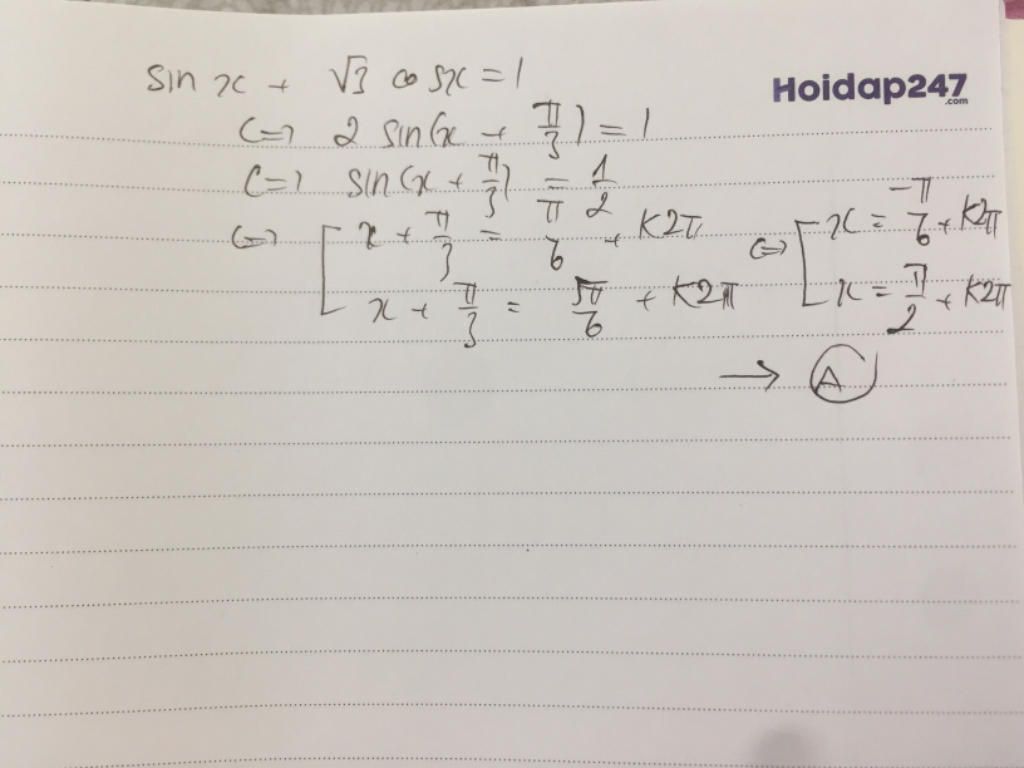 sin x + √3 cosx = 1
Hoidap247
.com
<=> 2 sin(x + π/3) = 1
<=> sin(x + π/3) = 1/2
<=> [ x + π/3 = π/6 + K2π <=> [ x = -π/6 + K2π
x + π/3 = 5π/6 + K2π x = π/2 + K2π
→ A